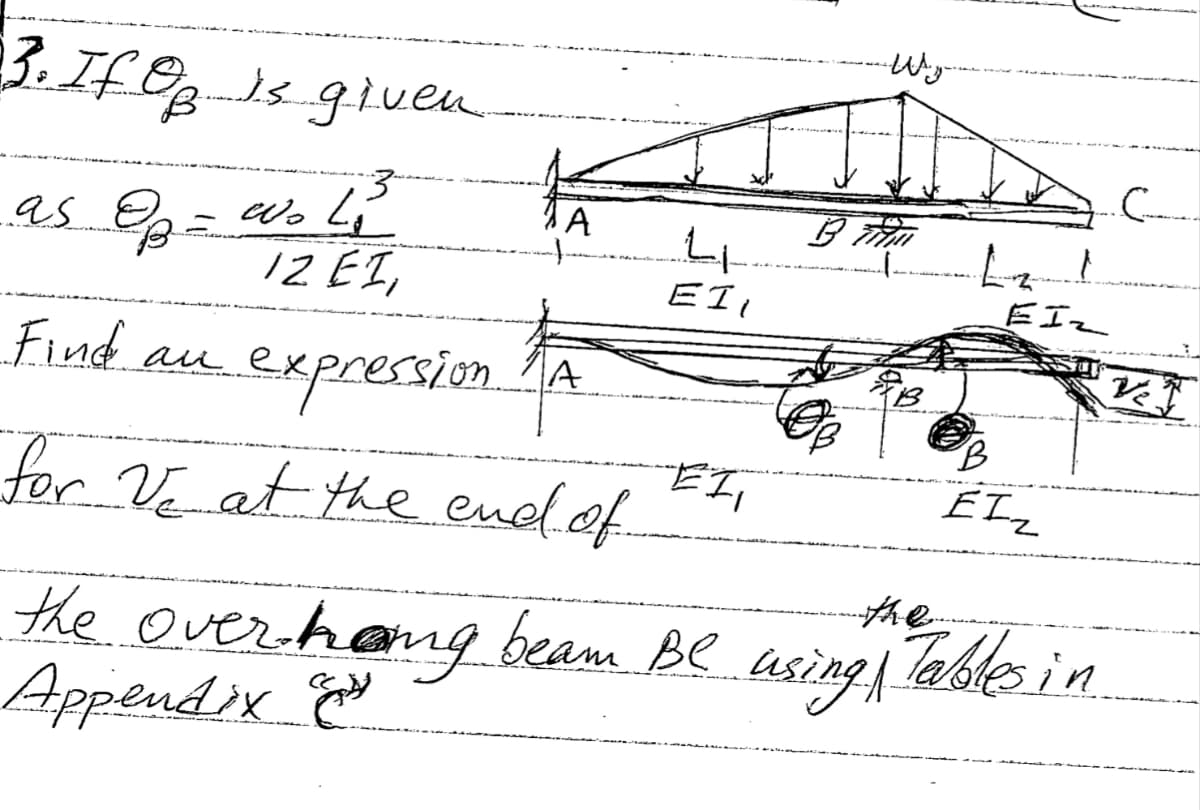 3. If θB is given
as θB = ω₀ L₁³
12 EI₁
Find an expression
for Vc at the end of
the overhang beam BC using the Tables in
Appendix "C"
A
L₁
B
L₂
C
EI₁
EI₂
A
θB
B
θB
Vc
EI₁
EI₂